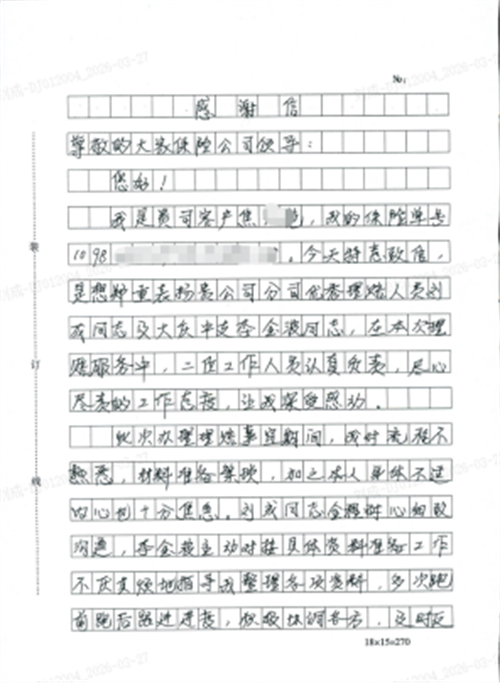 No:
感谢信
尊敬的大家保险公司领导：
您好！
我是贵司客户焦　艳，我的保险单号
1098　。今天特意致信，
是想郑重表扬贵公司分司优秀理赔人员刘
成同志及大庆中支李金毅同志，在本次理
赔服务中，二位工作人员认真负责，尽心
尽责的工作态度，让我深受感动。
此次办理理赔事宜期间，我对流程不
熟悉，材料准备繁琐，加之本人身体不适
内心也十分焦急。刘成同志全程耐心细致
沟通，李金毅主动对接具体资料准备工作
不厌其烦地指导我整理各项资料，多次跑
前跑后跟进进度，积极协调各方，及时反
装
订
线
18×15=270